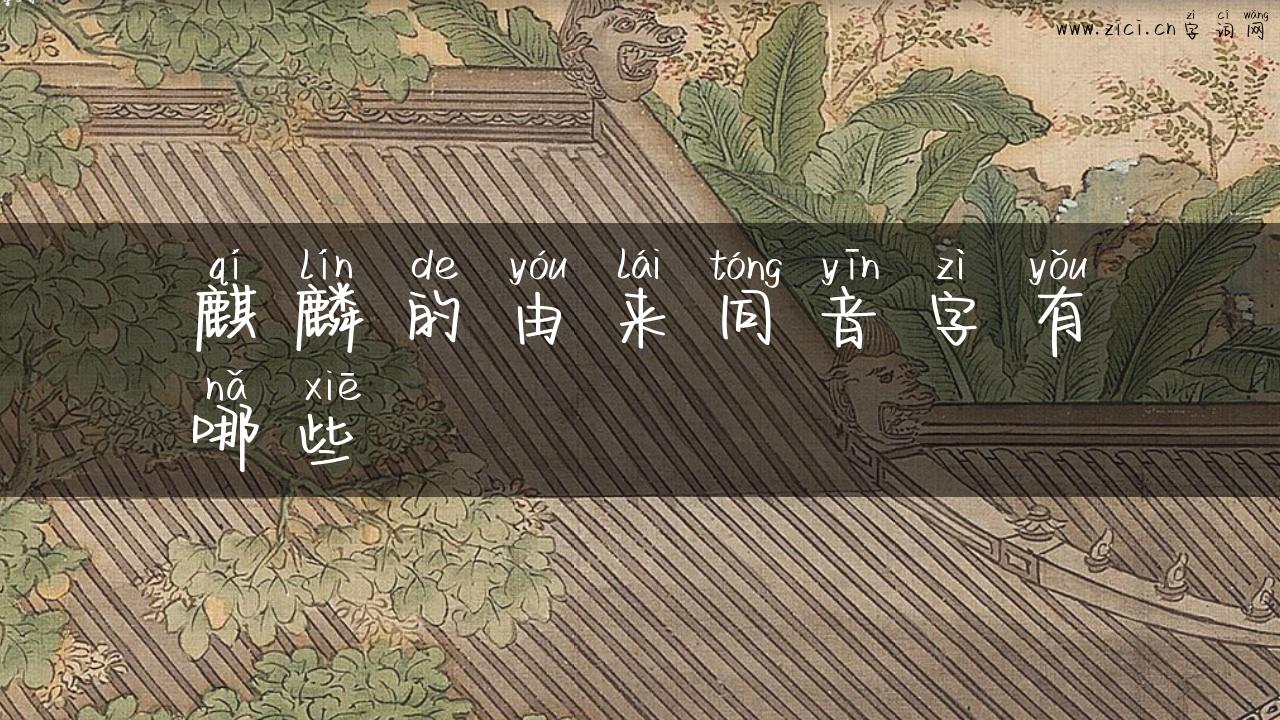 zì cí wǎng
www.zici.cn 字词网
qí lín de yóu lái tóng yīn zì yǒu
麒麟的由来同音字有
nǎ xiē
哪些